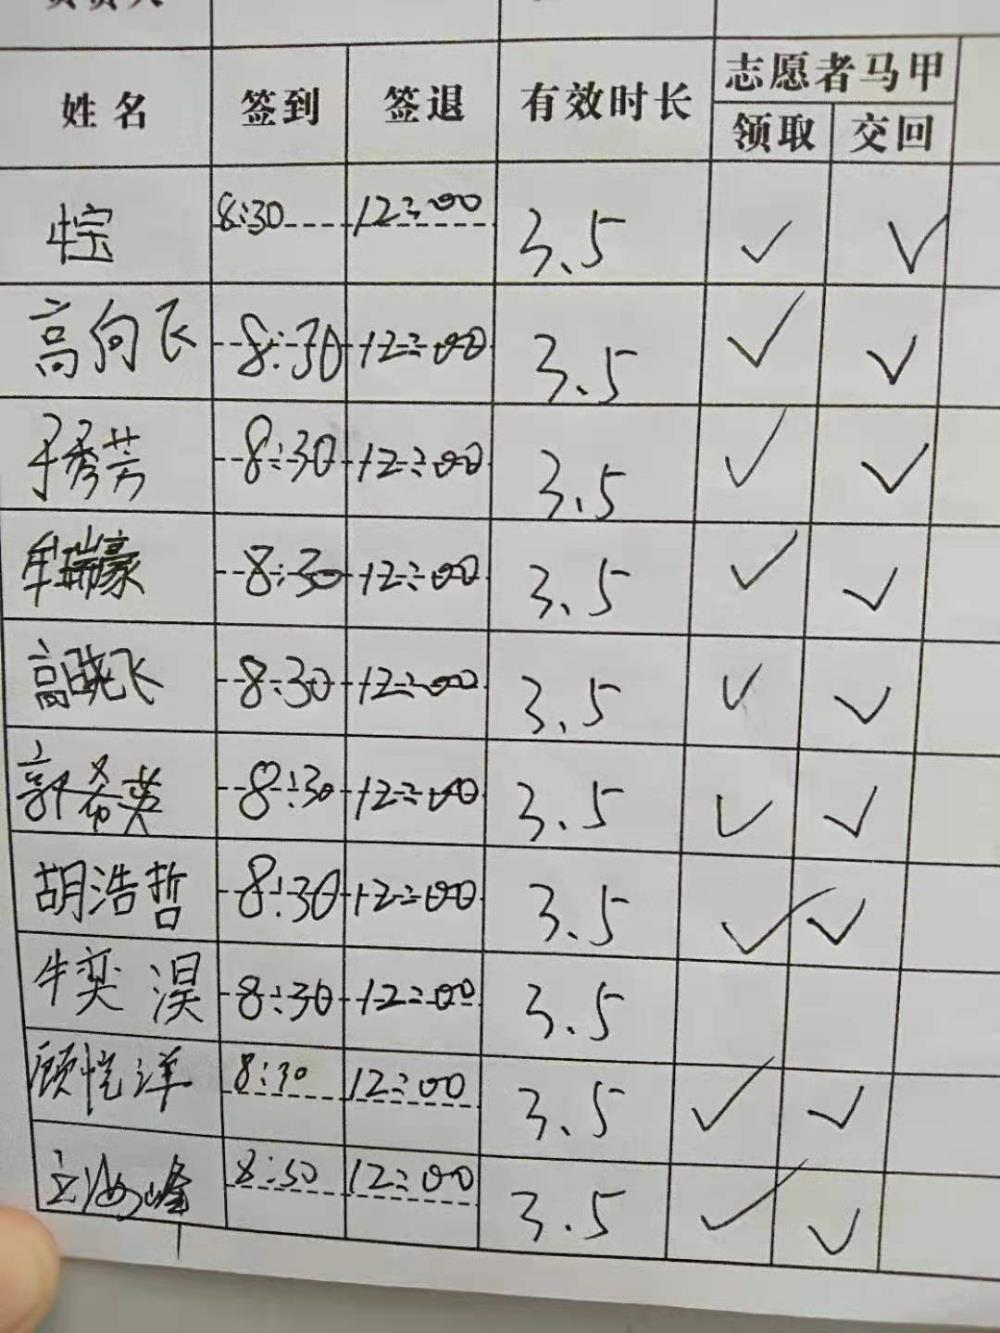 姓名 签到 签退 有效时长 志愿者马甲
领取 交回
牛宝 8:30 12:00 3.5 ✓ ✓
高向飞 8:30 12:00 3.5 ✓ ✓
于秀芳 8:30 12:00 3.5 ✓ ✓
牟瑞豪 8:30 12:00 3.5 ✓ ✓
高晓飞 8:30 12:00 3.5 ✓ ✓
郭希英 8:30 12:00 3.5 ✓ ✓
胡浩哲 8:30 12:00 3.5 ✓ ✓
牛奕淏 8:30 12:00 3.5
顾恺洋 8:30 12:00 3.5 ✓ ✓
海峰 8:30 12:00 3.5 ✓ ✓